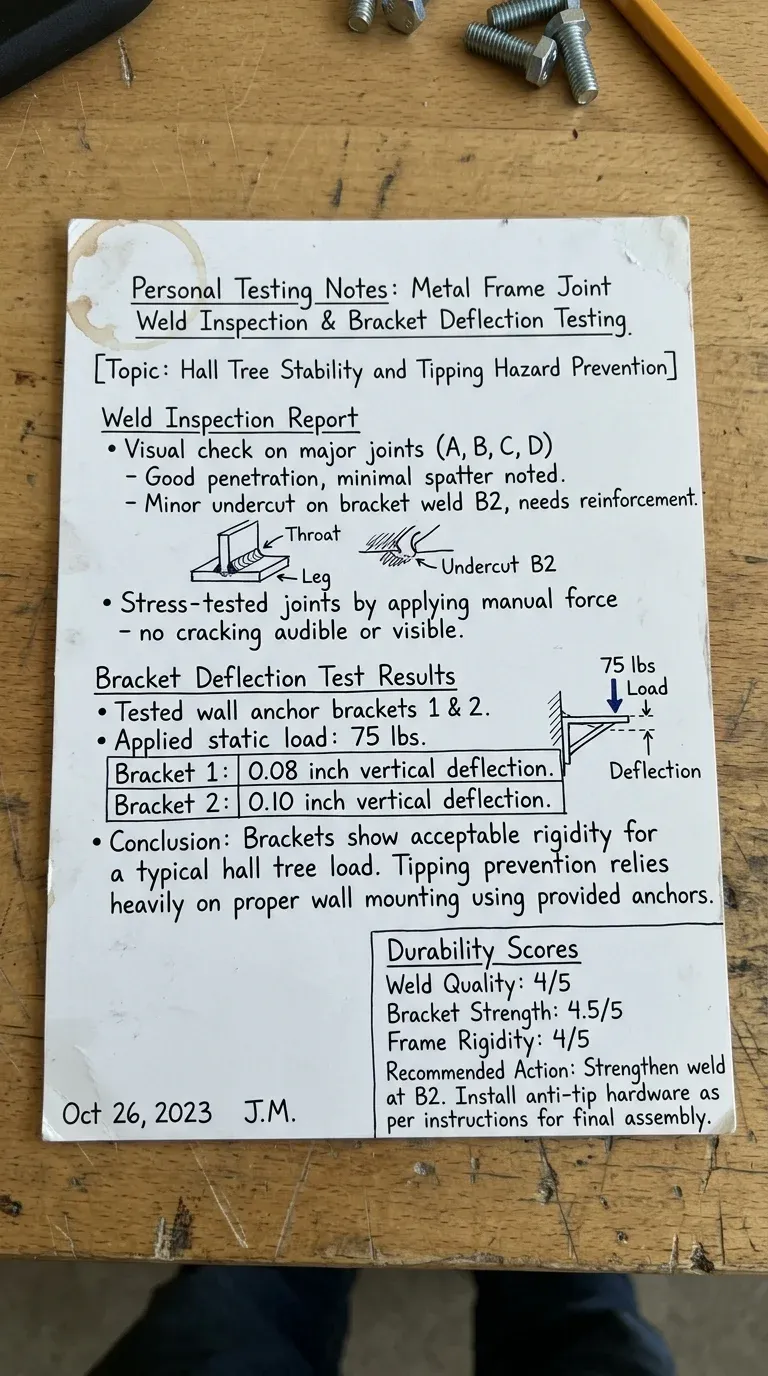 Personal Testing Notes: Metal Frame Joint
Weld Inspection & Bracket Deflection Testing.
[Topic: Hall Tree Stability and Tipping Hazard Prevention]
Weld Inspection Report
• Visual check on major joints (A, B, C, D)
– Good penetration, minimal spatter noted.
– Minor undercut on bracket weld B2, needs reinforcement.
Throat
Leg
Undercut B2
• Stress-tested joints by applying manual force
– no cracking audible or visible.
Bracket Deflection Test Results
• Tested wall anchor brackets 1 & 2.
• Applied static load: 75 lbs.
Bracket 1: 0.08 inch vertical deflection.
Bracket 2: 0.10 inch vertical deflection.
75 lbs
Load
Deflection
• Conclusion: Brackets show acceptable rigidity for
a typical hall tree load. Tipping prevention relies
heavily on proper wall mounting using provided anchors.
Durability Scores
Weld Quality: 4/5
Bracket Strength: 4.5/5
Frame Rigidity: 4/5
Recommended Action: Strengthen weld
at B2. Install anti-tip hardware as
per instructions for final assembly.
Oct 26, 2023 J.M.